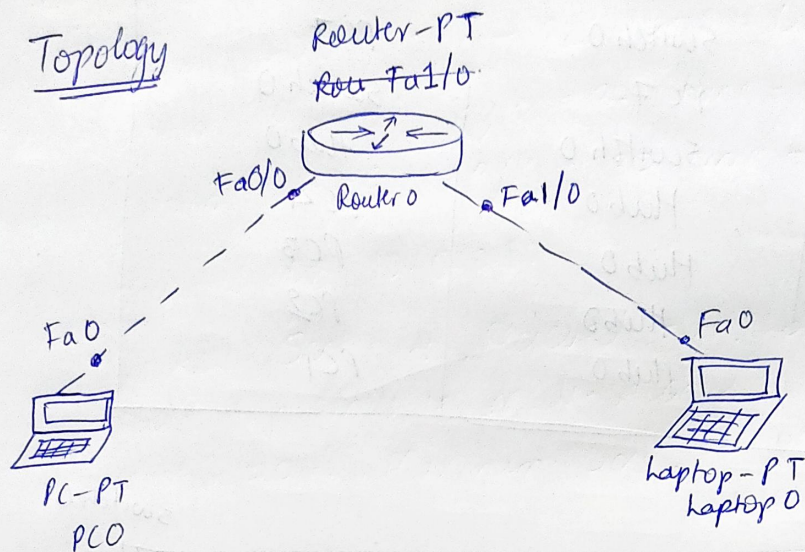 Topology
Router-PT
Rou Fa1/0
Fa0/0
Router 0
Fa1/0
Fa0
Fa0
PC-PT
PC0
Laptop-PT
Laptop 0